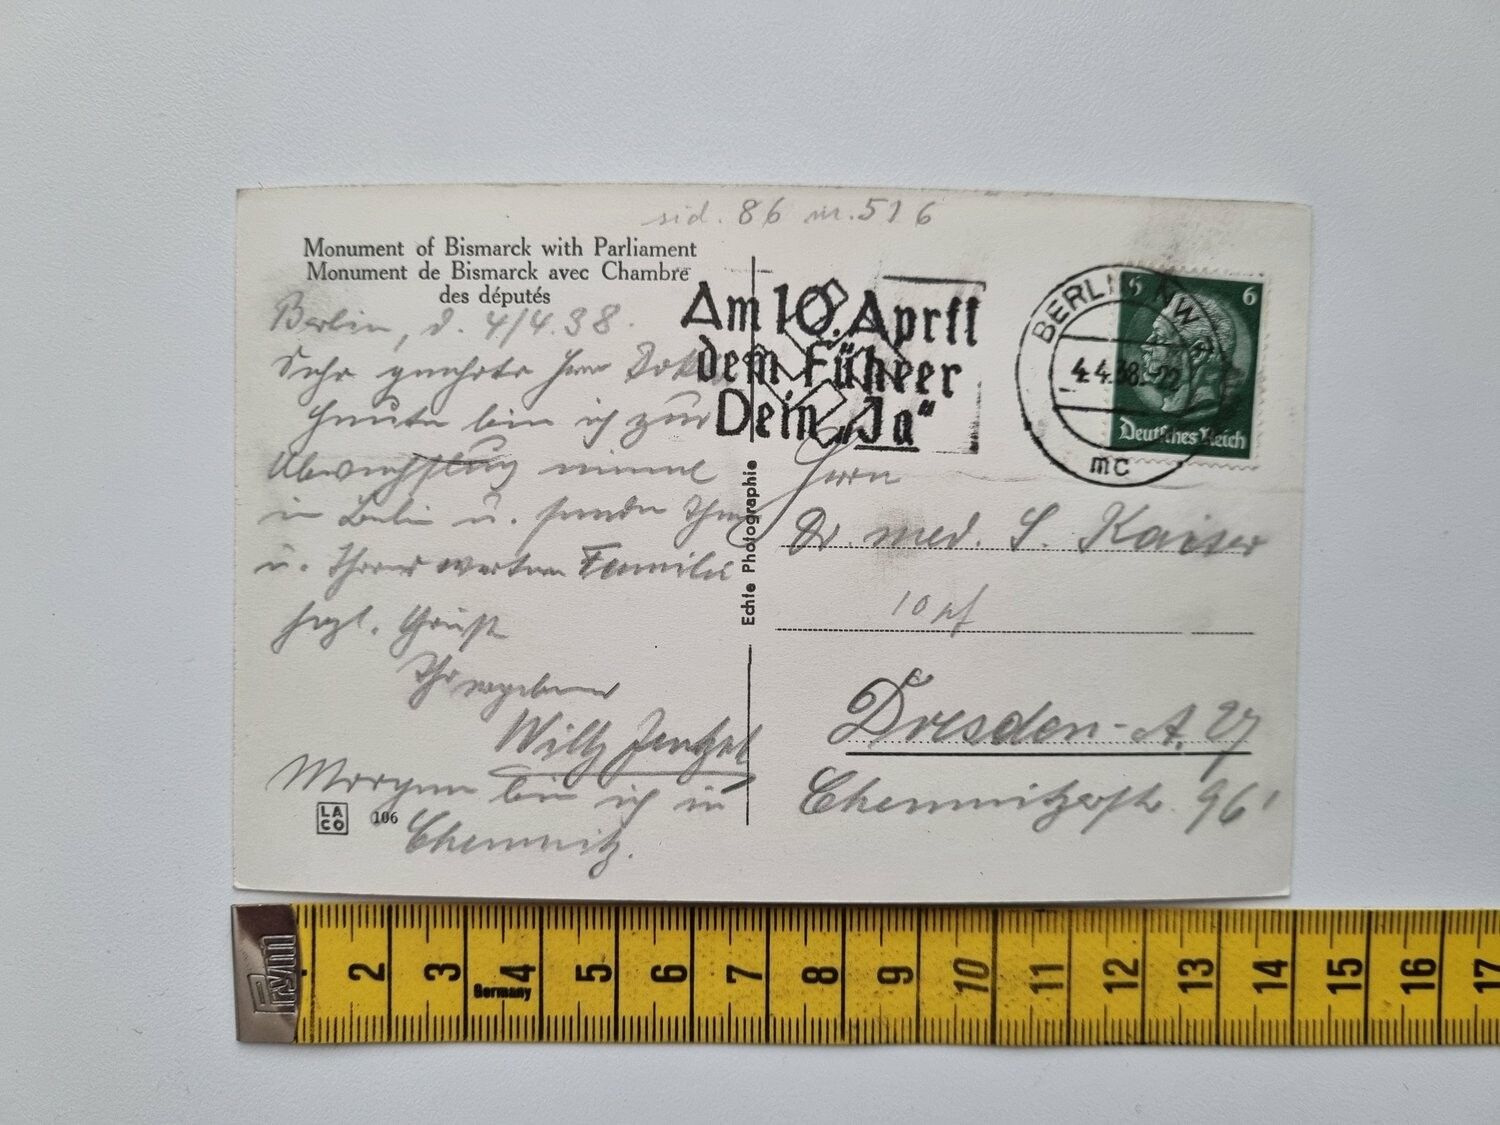 sid. 86 nr. 516
Monument of Bismarck with Parliament
Monument de Bismarck avec Chambre
des députés
Berlin, d. 4/4.38.
Sehr geehrter Herr
Heute bin ich zur
Abwechslung einmal
in Berlin u. sende Ihnen
u. Ihrer werten Familie
hrzl. Grüße
Ihr ergebener
Willy
Morgen bin ich in
Chemnitz.
LA
CO
106
Echte Photographie
Am 10. April
dem Führer
Dein „Ja“
BERLIN NW
4.4.38.-22
mc
6 6
Deutsches Reich
Herrn
Dr. med. S. Kaiser
10 pf
Dresden-A. 27
Chemnitzerstr. 96
Prym
2 3 4 5 6 7 8 9 10 11 12 13 14 15 16 17
Germany